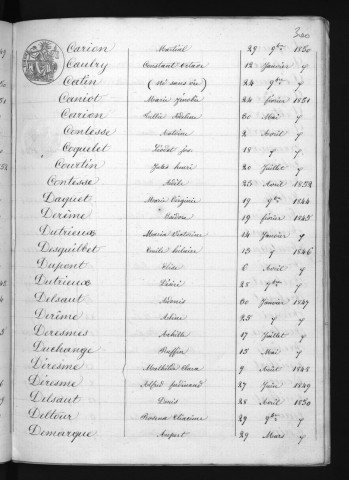 320
Carion Martial 29 9bre 1850
Coutry Constant Octave 12 Janvier y
Catin (né sans vie) 24 9bre y
Caniot Marie Zénobie 24 février 1851
Carion Adeline 30 Mai y
Contesse Antoine 2 Avril y
Coquelet jse 18 y y
Courtin Jules henri 20 Juillet y
Contesse Adèle 25 Avril 1852
Daquet Marie Virginie 19 9bre 1844
Derême 19 février 1845
Dutrieux Maria Victorine 14 Janvier y
Desquilbet Emile hilaire 13 y 1846
Dupont Elise 6 Avril y
Dutrieux Désiré 28 9bre y
Delsaut Aimée 30 Janvier 1847
Derême Aline 25 y y
Deresmes Achille 17 Juillet y
Duchange Zéffin 15 Mai y
Déresme Mathilde Clara 9 Août 1848
Déresme Alfred ferdinand 27 Juin 1849
Delsaut Denis 28 Avril 1850
Deltour Rosina 29 9bre y
Demarque 29 Mars y